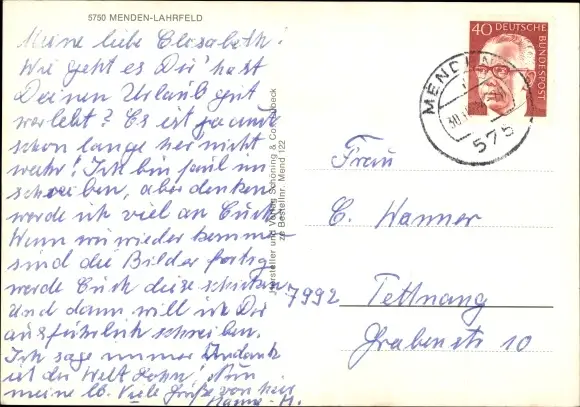 5750 MENDEN-LAHRFELD
Meine liebe Elisabeth!
Wie geht es Dir hast
Deinen Urlaub gut
verlebt? Es ist ja auch
schon lange her nicht
wahr! Ich bin faul im
schreiben, aber denken
werde ich viel an Euch
Wenn wir wieder kommen
sind die Bilder fertig
werde Euch diese schicken
Und dann will ich Dir
ausführlich schreiben.
Ich sage immer Undank
ist der Welt Lohn! Nun
meine lb. Viele Grüße von hier
Hanne-
Hersteller und Verlag Schöning & Co
zu Bestellnr. Mend 122
40 DEUTSCHE
BUNDESPOST
MENDEN
575
Frau
E. Wanner
7992 Tettnang
Grabenstr 10